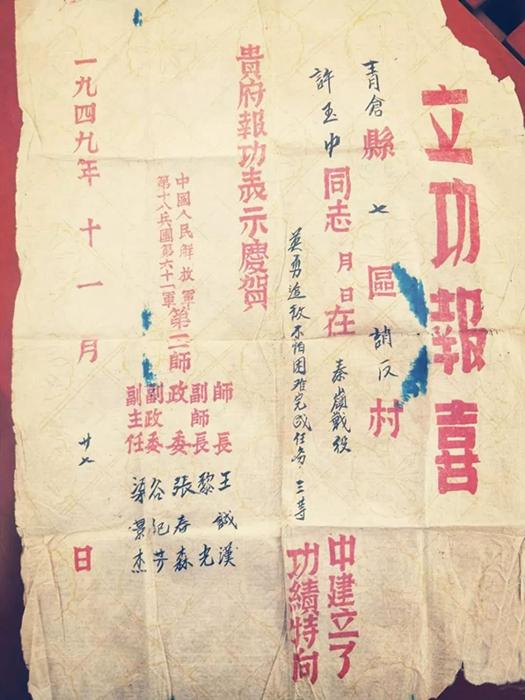 立功報喜
青倉縣七區趙仄村
許玉中同志 月 日在秦嶺戰役
中建立了
英勇追敌不怕困难完成任务三等
功績特向
貴府報功表示慶賀
中國人民解放軍
第十八兵團第六十一軍
第二師
師長 王誠漢
副師長 黎光
政委 張春森
副政委 谷紀芳
副主任 梁景杰
一九四九年十一月廿七日